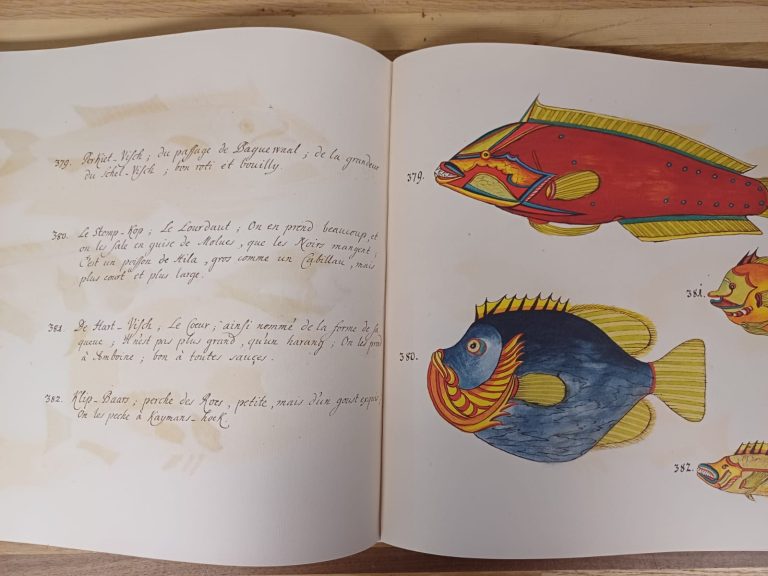 379. Perkiet-Visch; du passage de Baguewaal; de la grandeur
du schel-Visch; bon roti et bouilly.
380. Le Stomp-Kop; Le Lourdaut; On en prend beaucoup, et
on les sale en guise de Molues, que les Noirs mangent;
C'est un poisson de Hila, gros comme un Cabillau, mais
plus court et plus large.
381. De Hart-Visch; Le Cœur; ainsi nommé de la forme de sa
queue; Il n'est pas plus grand, qu'un harang; On les prend
à Amboine; bon à toutes sauçes.
382. Klip-Baars; perche des Rocs, petite, mais d'un goust exquis,
On les peche à Kaymans-hoek.
379.
381.
380.
382.